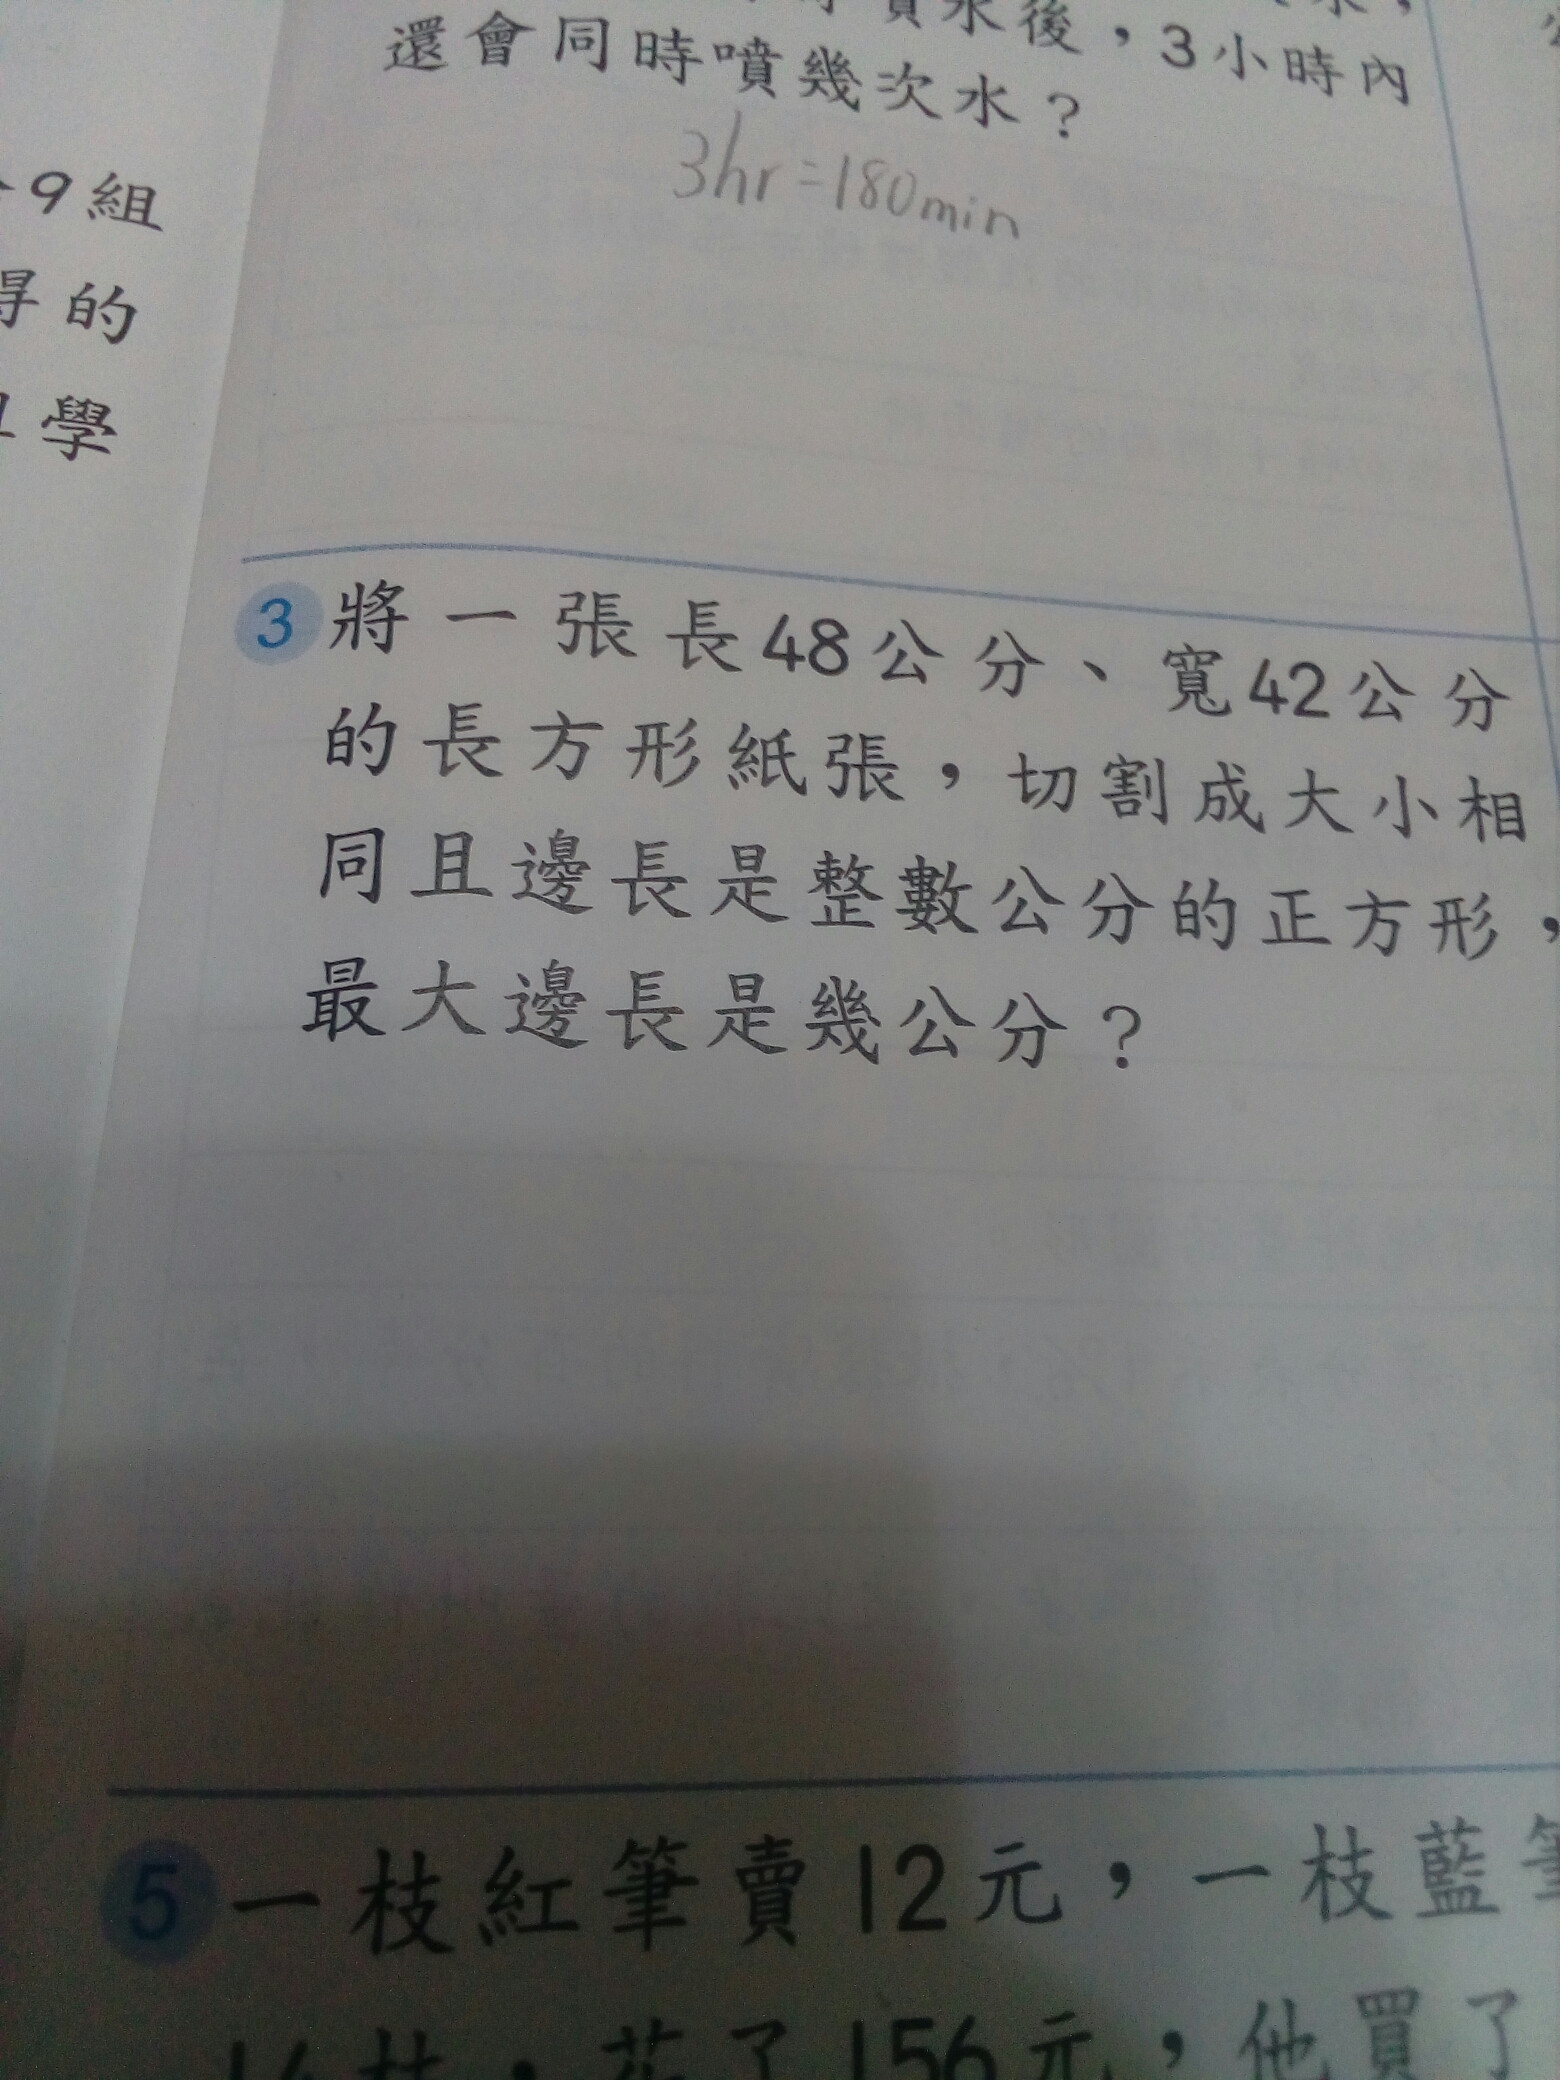 噴水後，3小時內
還會同時噴幾次水？
3hr=180min
9組
得的
學
3 將一張長48公分、寬42公分
的長方形紙張，切割成大小相
同且邊長是整數公分的正方形，
最大邊長是幾公分？
5 一枝紅筆賣12元，一枝藍筆
156元，他買了